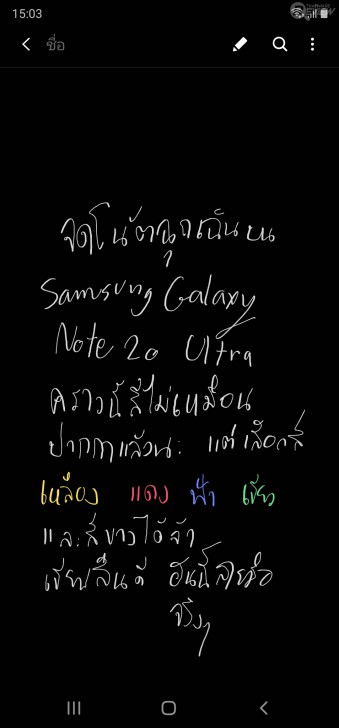 15:03
ชื่อ
จดโน้ตฉุกเฉินบน
Samsung Galaxy
Note 20 Ultra
คราวนี้สีไม่เหมือน
ปากกาแล้วนะ แต่เลือกสี
เหลือง แดง ฟ้า เขียว
และสีขาวได้จ้า
เขียนลื่นดี อันนี้ลายมือ
จริงๆ